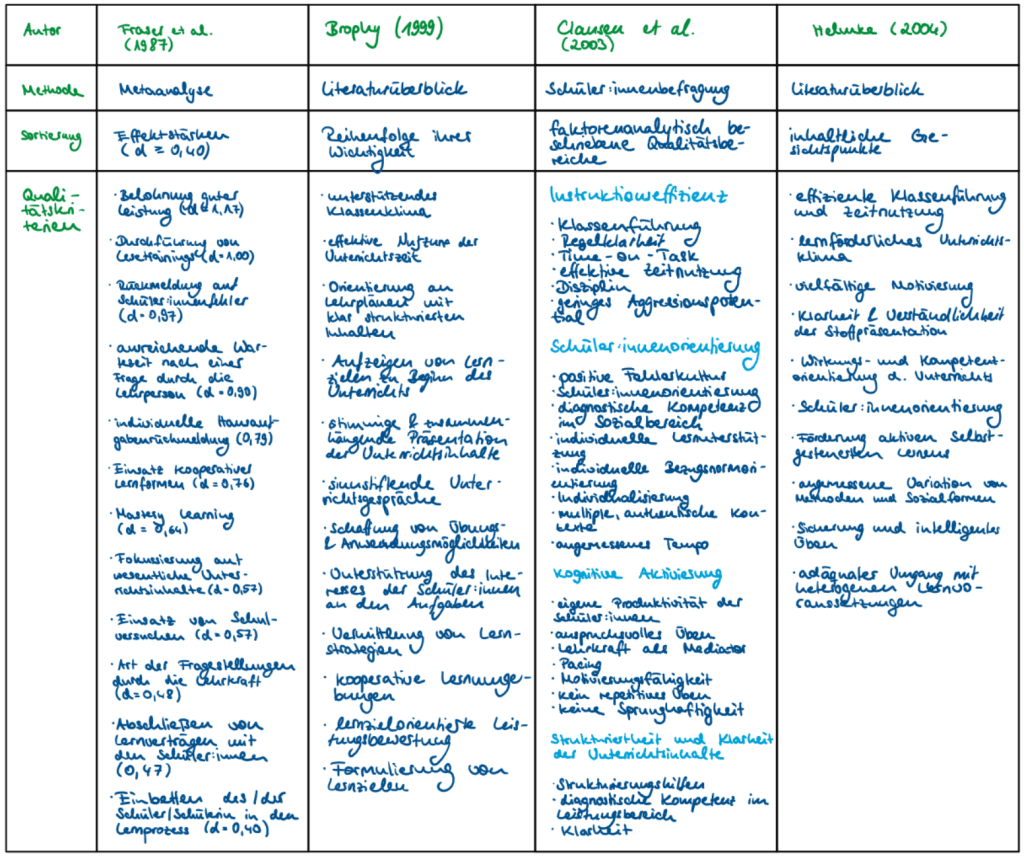 Autor
Fraser et al.
(1987)
Brophy (1999)
Clausen et al.
(2003)
Helmke (2004)
Methode
Metaanalyse
Literaturüberblick
Schüler:innenbefragung
Literaturüberblick
Sortierung
Effektstärken
(d = 0,40)
Reihenfolge ihrer
Wichtigkeit
faktorenanalytisch be-
schriebene Qualitätsbe-
reiche
inhaltliche Ge-
sichtspunkte
Quali-
tätskri-
terien
· Belohnung guter
Leistung (d = 1,17)
· Durchführung von
Lesetrainings (d = 1,00)
· Rückmeldung auf
Schüler:innenfehler
(d = 0,97)
· ausreichende War-
tezeit nach einer
Frage durch die
Lehrperson (d = 0,90)
· individuelle Hausauf-
gabenrückmeldung (0,79)
· Einsatz kooperativer
Lernformen (d = 0,76)
· Mastery Learning
(d = 0,64)
· Fokussierung auf
wesentliche Unter-
richtsinhalte (d = 0,57)
· Einsatz von Schul-
versuchen (d = 0,57)
· Art der Fragestellungen
durch die Lehrkraft
(d = 0,48)
· Abschließen von
Lernverträgen mit
den Schüler:innen
(0,47)
· Einbetten des / der
Schüler/Schülerin in den
Lernprozess (d = 0,40)
· unterstützendes
Klassenklima
· effektive Nutzung der
Unterrichtszeit
· Orientierung an
Lehrplänen mit
klar strukturierten
Inhalten
· Aufzeigen von Lern-
zielen zu Beginn des
Unterrichts
· stimmige & zusammen-
hängende Präsentation
der Unterrichtsinhalte
· sinnstiftende Unter-
richtsgespräche
· Schaffung von Übungs-
& Anwendungsmöglichkeiten
· Unterstützung des Inte-
resses der Schüler:innen
an den Aufgaben
· Vermittlung von Lern-
strategien
· kooperative Lernumge-
bungen
· lernzielorientierte Leis-
tungsbewertung
· Formulierung von
Lernzielen
Instruktionseffizienz
· Klassenführung
· Regelklarheit
· Time-on-Task
· effektive Zeitnutzung
· Disziplin
· geringes Aggressionspoten-
zial
Schüler:innenorientierung
· positive Fehlerkultur
· Schüler:innenorientierung
· diagnostische Kompetenz
im Sozialbereich
· individuelle Lernunterstüt-
zung
· individuelle Bezugsnormori-
entierung
· Individualisierung
· multiple, authentische Kon-
texte
· angemessenes Tempo
Kognitive Aktivierung
· eigene Produktivität der
Schüler:innen
· anspruchsvolles Üben
· Lehrkraft als Mediator
· Pacing
· Motivierungsfähigkeit
· kein repetitives Üben
· keine Sprunghaftigkeit
Strukturiertheit und Klarheit
der Unterrichtsinhalte
· Strukturierungshilfen
· diagnostische Kompetenz im
Leistungsbereich
· Klarheit
· effiziente Klassenführung
und Zeitnutzung
· lernförderliches Unterrichts-
klima
· vielfältige Motivierung
· Klarheit & Verständlichkeit
der Stoffpräsentation
· Wirkungs- und Kompetenz-
orientierung d. Unterrichts
· Schüler:innenorientierung
· Förderung aktiven Selbst-
gesteuerten Lernens
· angemessene Variation von
Methoden und Sozialformen
· Sicherung und intelligentes
Üben
· adäquater Umgang mit
heterogenen Lernvo-
raussetzungen